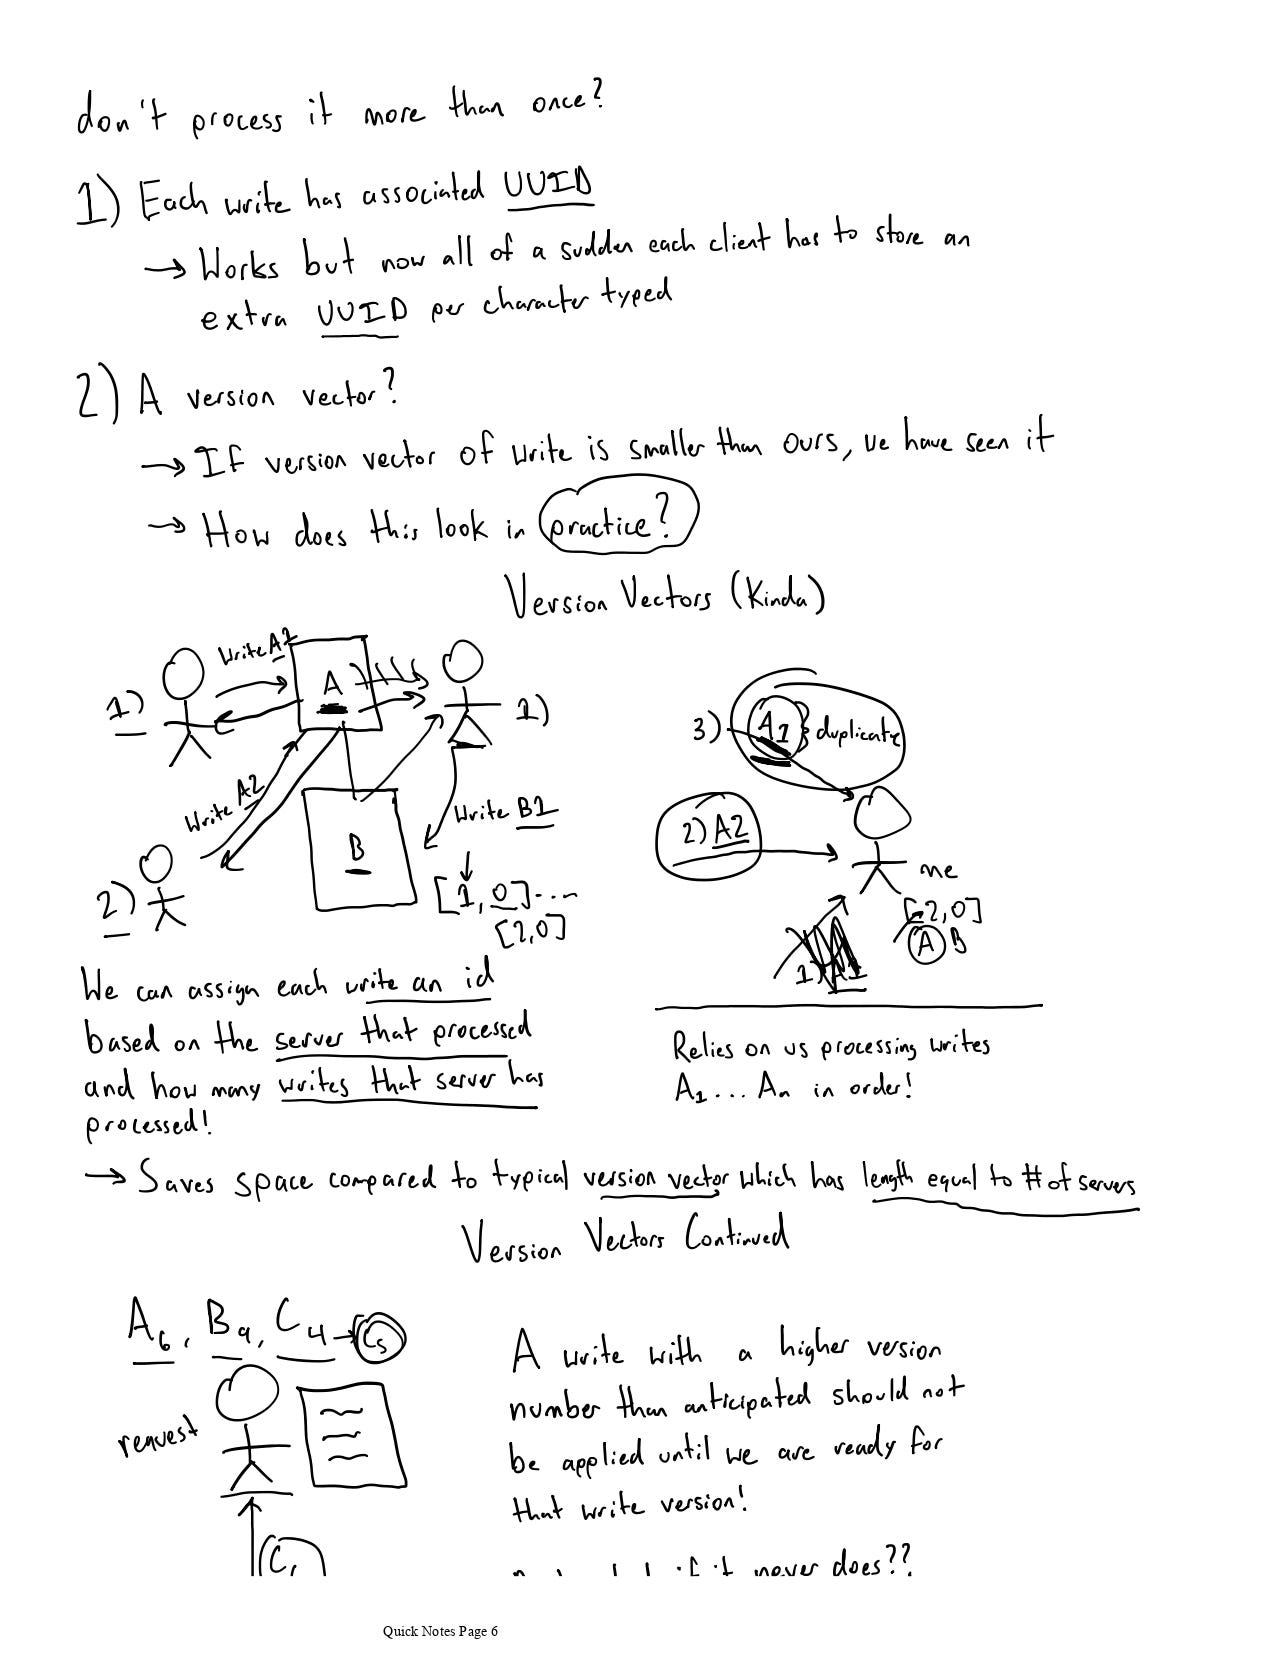 don't process it more than once?
1) Each write has associated UUID
→ Works but now all of a sudden each client has to store an
extra UUID per character typed
2) A version vector?
→ If version vector of write is smaller than ours, we have seen it
→ How does this look in practice?
Version Vectors (Kinda)
Write A1
1)
A
1)
Write A2
B
Write B1
2)
[1, 0] ....
[2,0]
3) A1 } duplicate
2) A2
me
[2,0]
A B
1) A1
We can assign each write an id
based on the server that processed
and how many writes that server has
processed!
Relies on us processing writes
A1 ... An in order!
→ Saves space compared to typical version vector which has length equal to # of servers
Version Vectors Continued
A6, B9, C4 → C5
request
A write with a higher version
number than anticipated should not
be applied until we are ready for
that write version!
if it never does??
Quick Notes Page 6